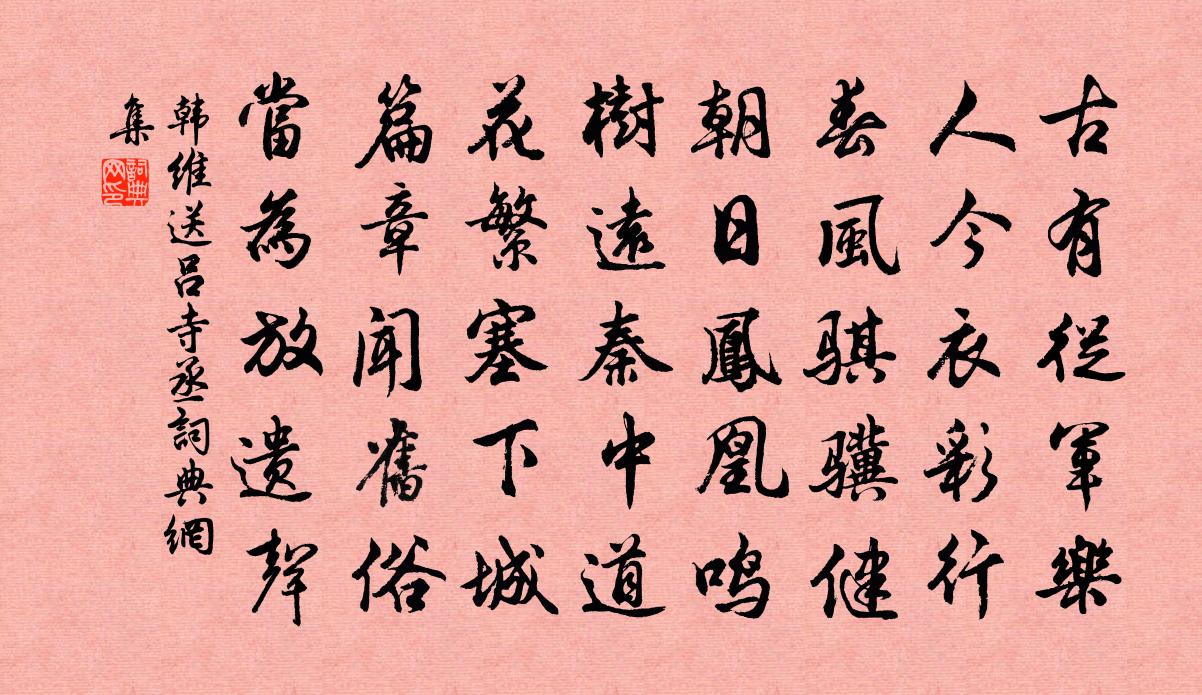 古有從軍樂
人今衣彩行
春風骐骥健
朝日鳳凰鸣
樹遠秦中道
花繁塞下城
篇章闻舊俗
當為放遗聲
韩維送吕寺丞詞典網
集
詞典
网印